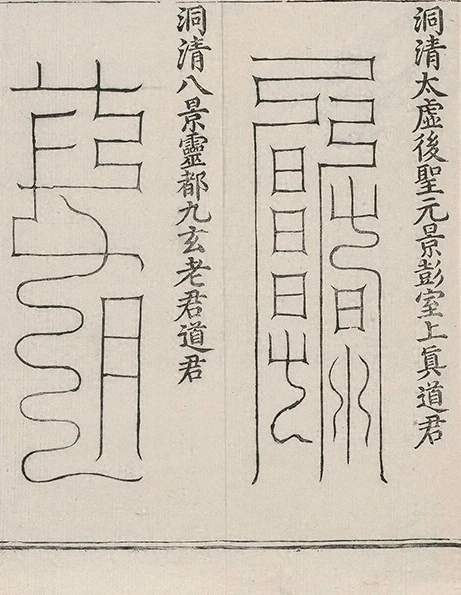 洞清太虛後聖元景彭室上眞道君
洞清八景靈都九玄老君道君